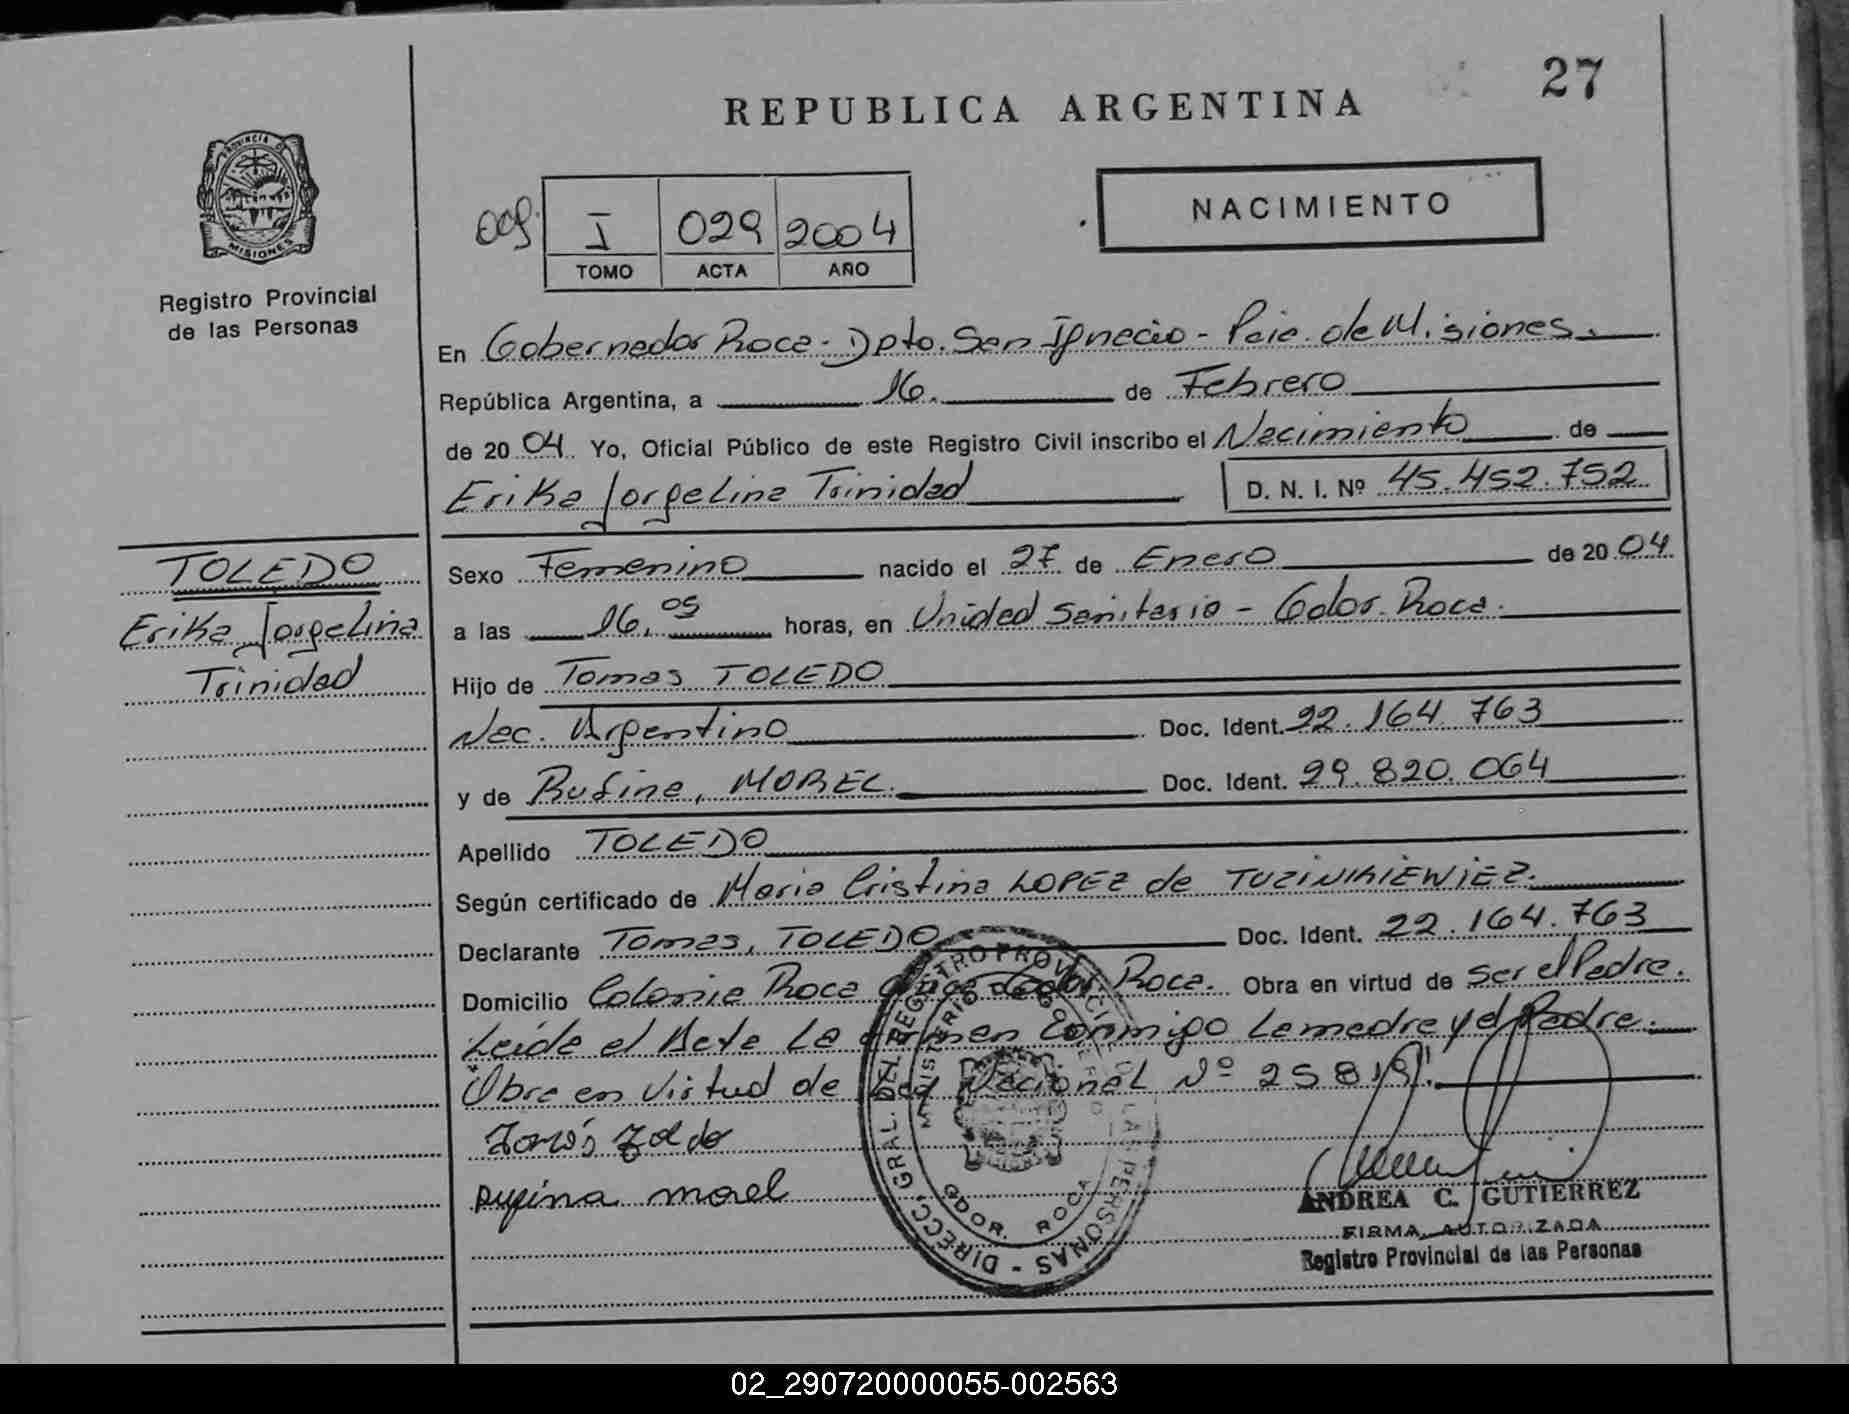 27
REPUBLICA ARGENTINA
PROVINCIA DE
MISIONES
Registro Provincial
de las Personas
009.
I 029 2004
TOMO ACTA AÑO
NACIMIENTO
En Gobernador Roca - Dpto. San Ignacio - Pcia. de Misiones.
República Argentina, a 16. de Febrero
de 2004. Yo, Oficial Público de este Registro Civil inscribo el Nacimiento de
Erika Jorgelina Trinidad D. N. I. Nº 45.452.752
TOLEDO
Erika Jorgelina
Trinidad
Sexo Femenino nacido el 27 de Enero de 2004
a las 16,05 horas, en Unidad Sanitario - Gdor. Roca.
Hijo de Tomas TOLEDO
Nac. Argentino Doc. Ident. 22.164.763
y de Rufina, MOREL. Doc. Ident. 29.820.064
Apellido TOLEDO
Según certificado de Maria Cristina LOPEZ de
Declarante Tomas, TOLEDO Doc. Ident. 22.164.763
Domicilio Colonia Roca Roca. Obra en virtud de ser el Padre.
Leída el Acta La firman conmigo La madre y el Padre.
Obra en Virtud de Ley Nacional Nº
Tomás
Rufina morel
DIRECC. GRAL. DEL REGISTRO PROVINCIAL DE LAS PERSONAS
MINISTERIO DE GOBIERNO
GDOR. ROCA
ANDREA C. GUTIERREZ
FIRMA AUTORIZADA
Registro Provincial de las Personas
02_290720000055-002563